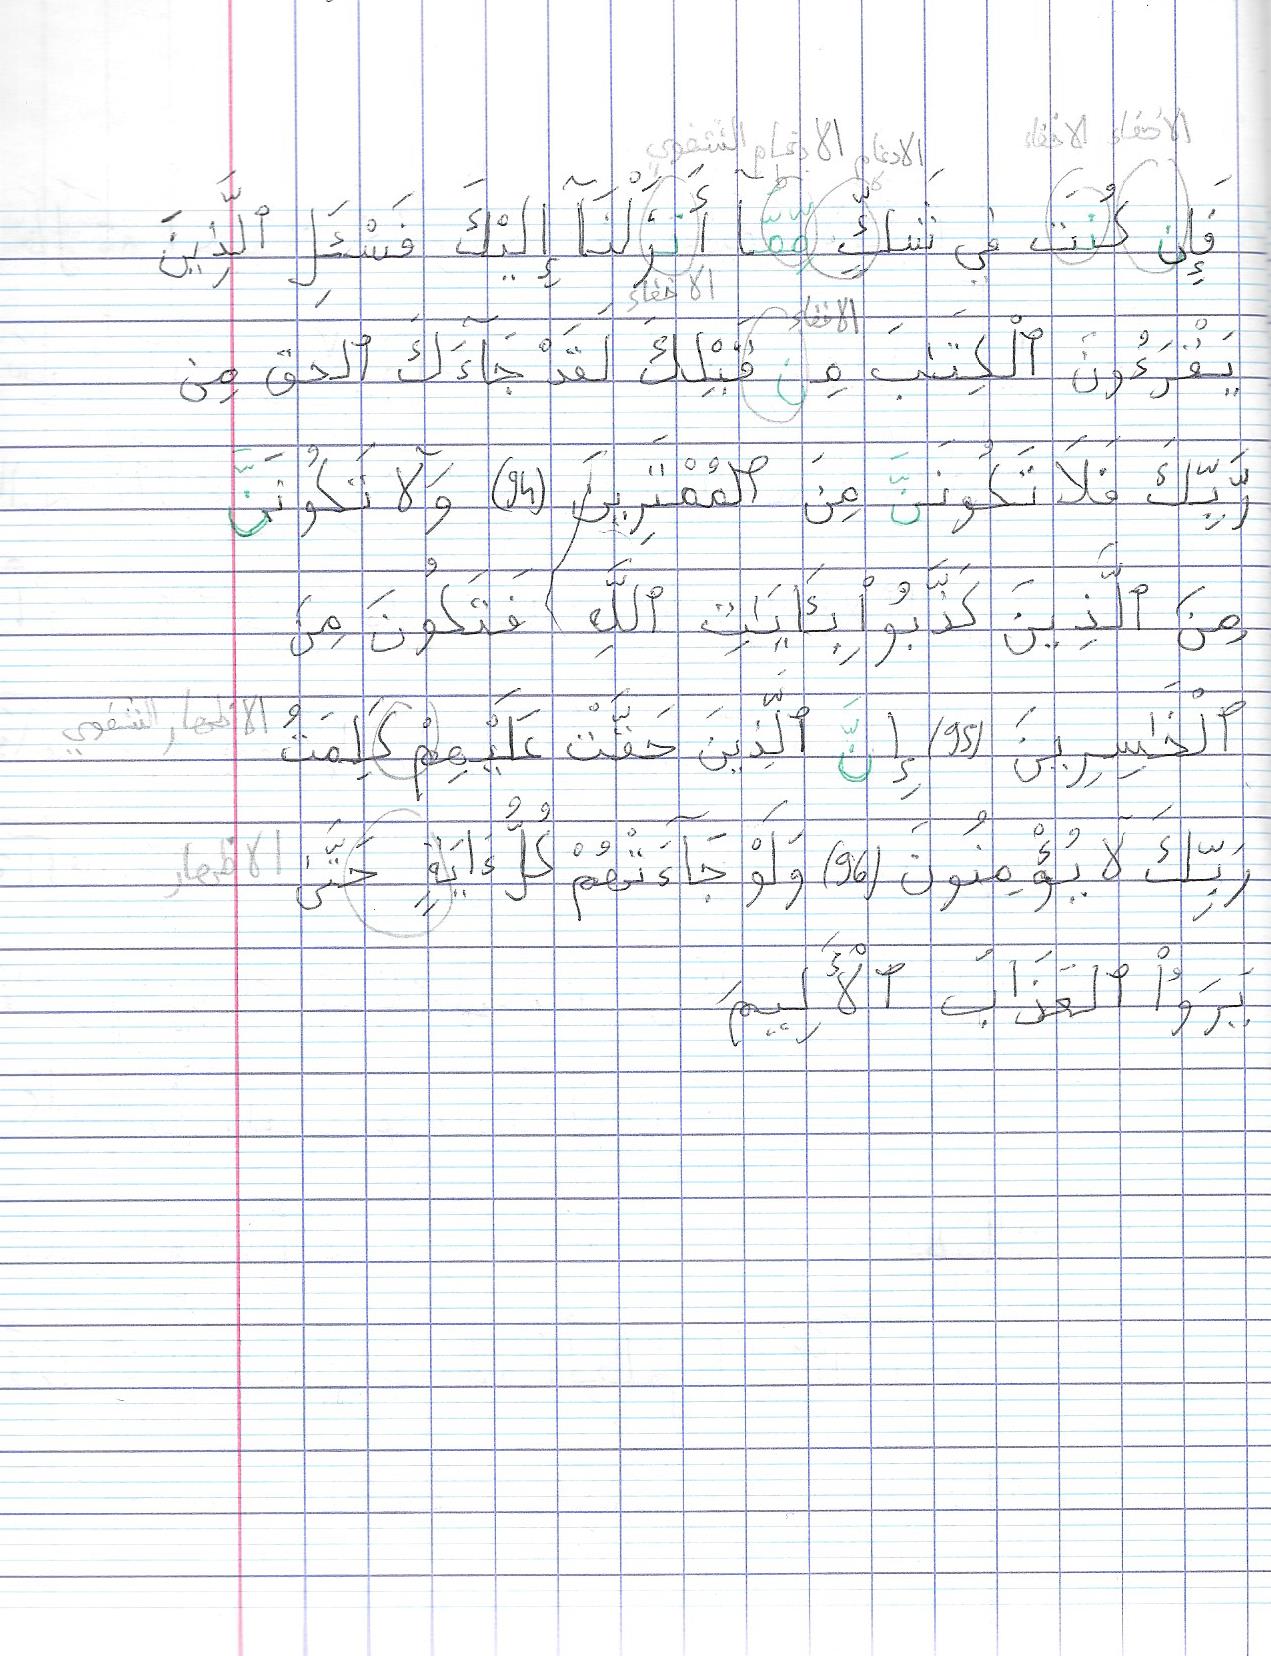 الاخفاء الاخفاء
الادغام الادغام الشفوي
فَإِن كُنتَ فِي شَكٍّ مِّمَّآ أَنزَلْنَآ إِلَيْكَ فَسْـَٔلِ ٱلَّذِينَ
الاخفاء
الاخفاء
يَقْرَءُونَ ٱلْكِتَٰبَ مِن قَبْلِكَ لَقَدْ جَآءَكَ ٱلحق مِن
رَّبِّكَ فَلَا تَكُونَنَّ مِنَ ٱلْمُمْتَرِينَ (94) وَلَا تَكُونَنَّ
مِنَ ٱلَّذِينَ كَذَّبُوا۟ بِـَٔايَٰتِ ٱللَّهِ فَتَكُونَ مِنَ
ٱلْخَٰسِرِينَ (95) إِنَّ ٱلَّذِينَ حَقَّتْ عَلَيْهِمْ كَلِمَتُ الاظهار الشفوي
رَبِّكَ لَا يُؤْمِنُونَ (96) وَلَوْ جَآءَتْهُمْ كُلُّ ءَايَةٍ حَتَّىٰ الاظهار
يَرَوُا۟ ٱلعَذَابَ ٱلْأَلِيمَ